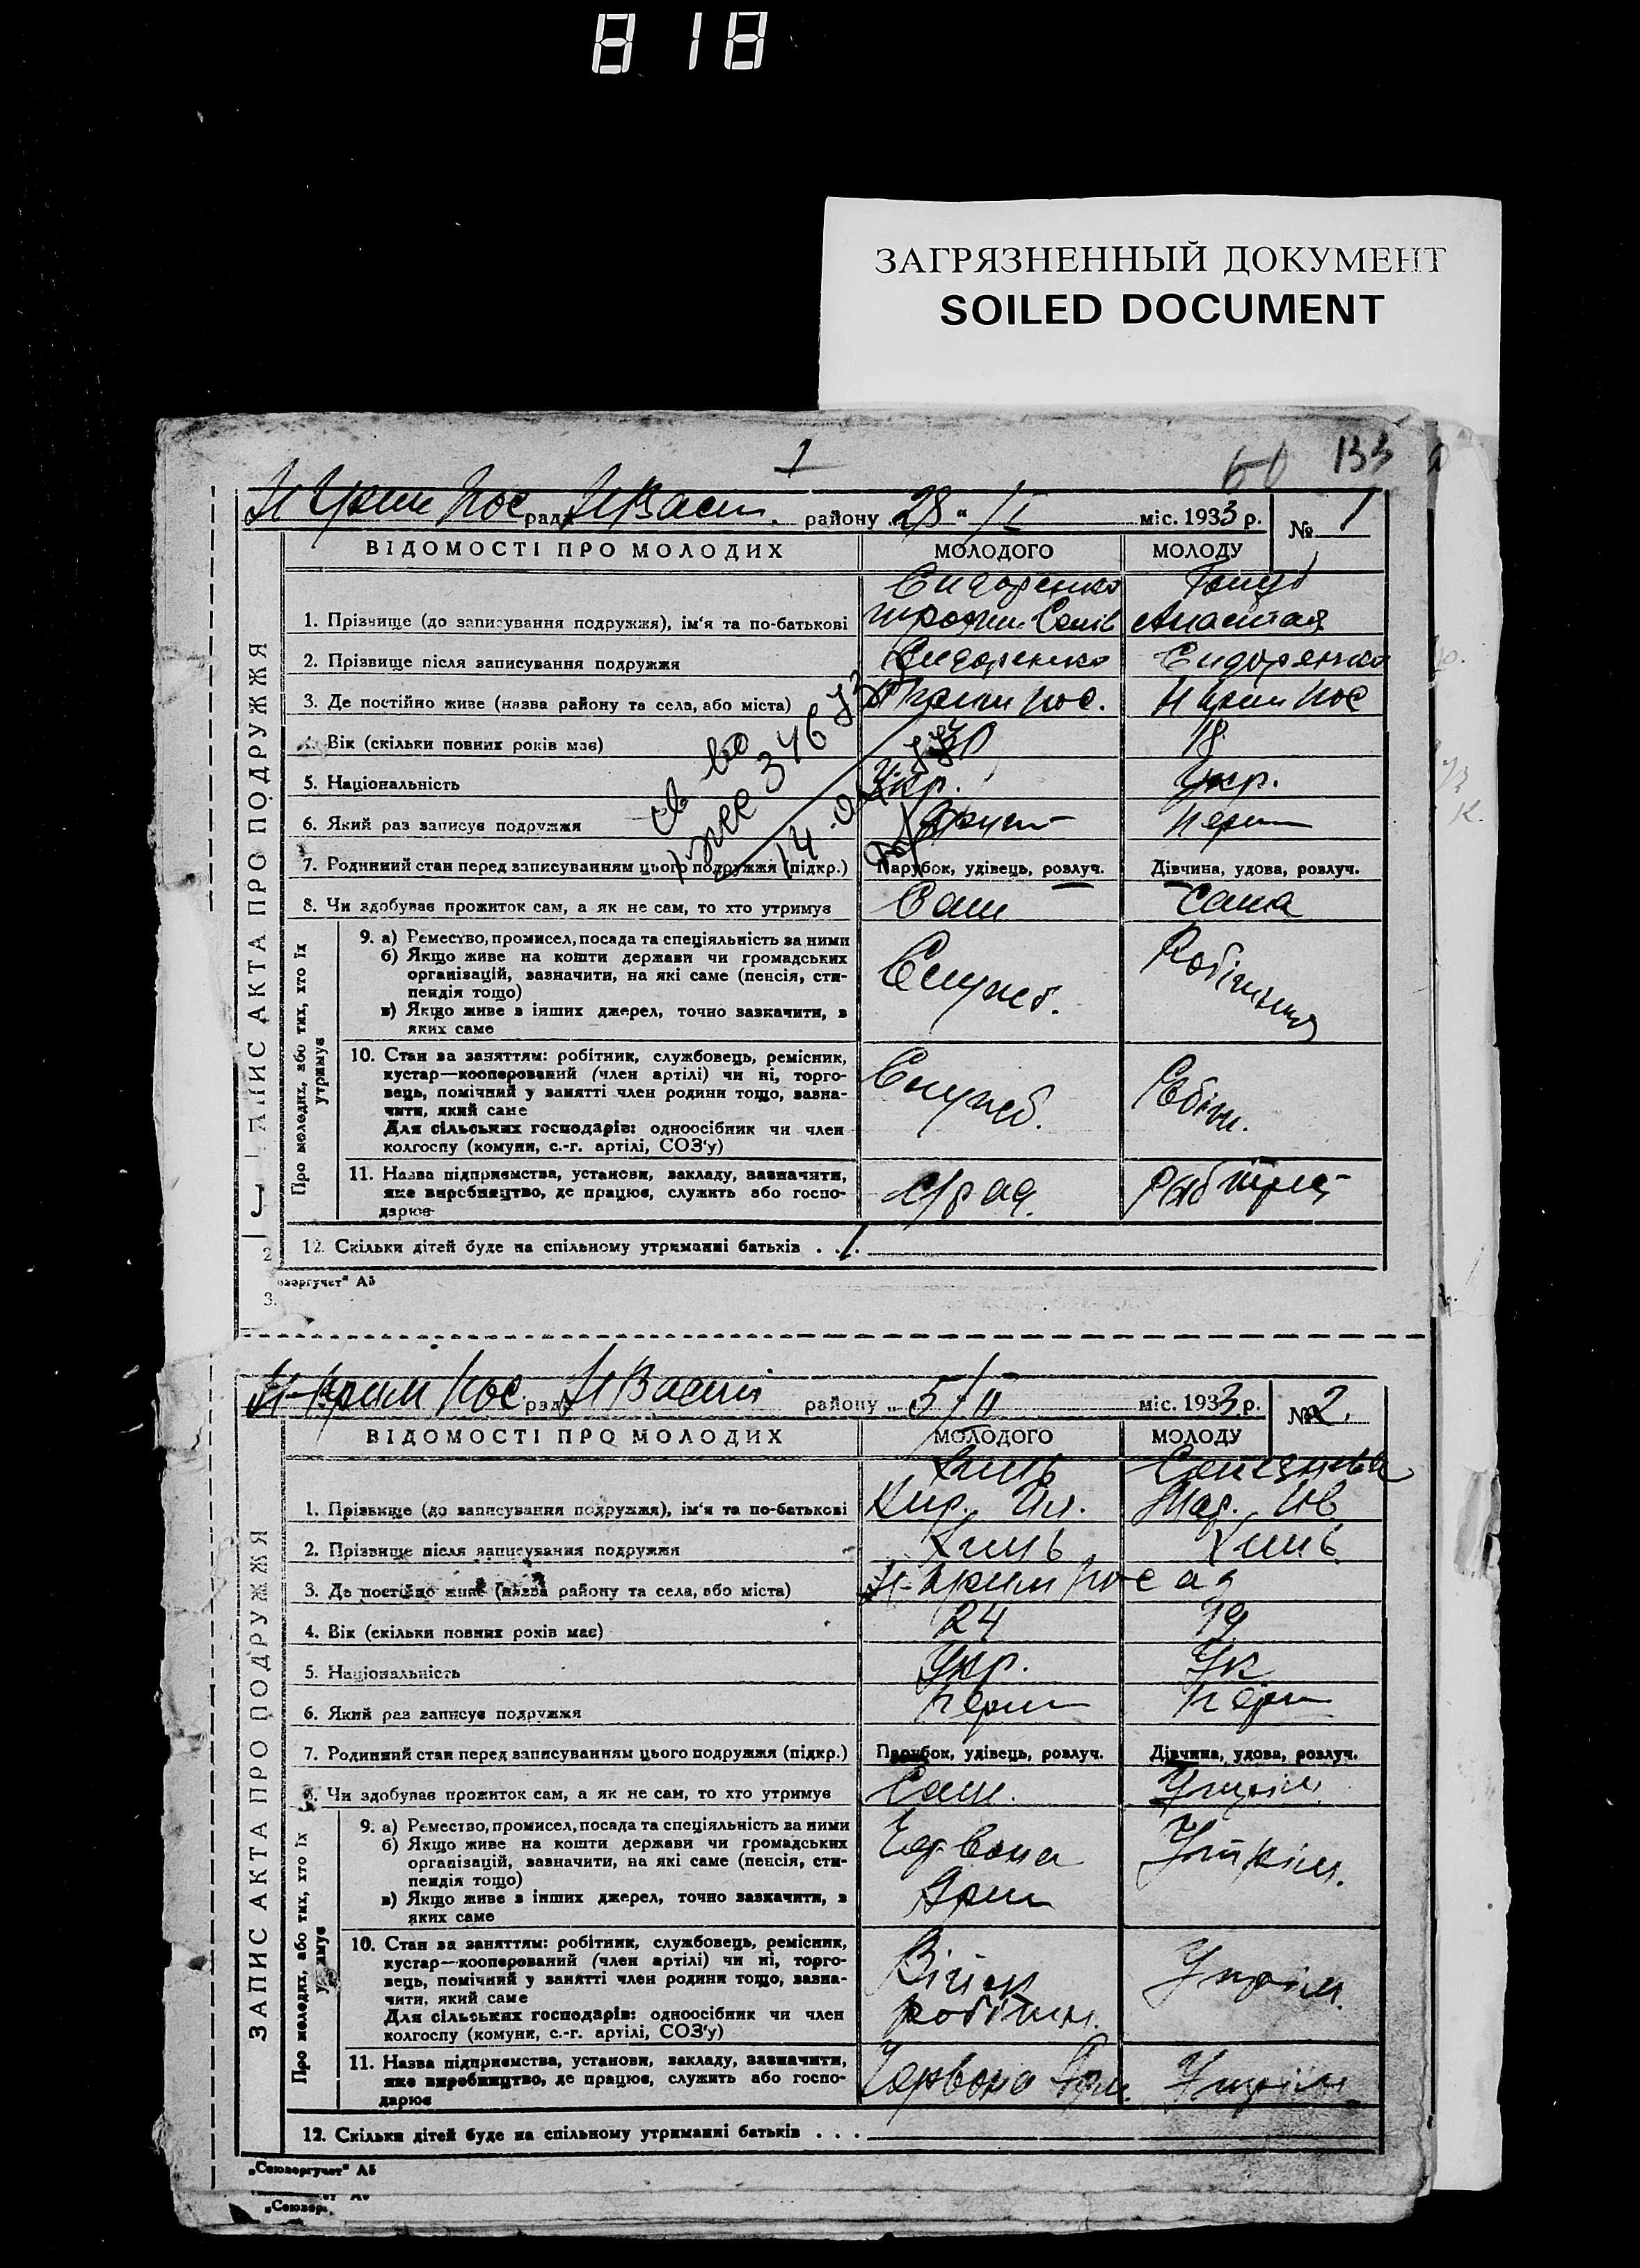 818
ЗАГРЯЗНЕННЫЙ ДОКУМЕНТ
SOILED DOCUMENT
1
133
рад району 28 " міс. 1933 р. № 1
ЗАПИС АКТА ПРО ПОДРУЖЖЯ
ВІДОМОСТІ ПРО МОЛОДИХ МОЛОДОГО МОЛОДУ
Сидоренко
1. Прізвище (до записування подружжя), ім'я та по-батькові
2. Прізвище після записування подружжя Сидоренко Сидоренко
3. Де постійно живе (назва району та села, або міста)
4. Вік (скільки повних років має) 18
5. Національність Укр. Укр.
6. Який раз записує подружжя Перш
7. Родинний стан перед записуванням цього подружжя (підкр.) Парубок, удівець, розлуч. Дівчина, удова, розлуч.
8. Чи здобував прожиток сам, а як не сам, то хто утримує Сам Сама
Про молодих, або тих, хто їх утримує
9. а) Ремество, промисел, посада та спеціяльність за ними
б) Якщо живе на кошти держави чи громадських
організацій, зазначити, на які саме (пенсія, сти-
пендія тощо)
в) Якщо живе з інших джерел, точно зазначити, з
яких саме
Служб. Робітниця
10. Стан за заняттям: робітник, службовець, ремісник,
кустар—кооперований (член артілі) чи ні, торго-
вець, помічний у занятті член родини тощо, зазна-
чити, який саме
Для сільських господарів: одноосібник чи член
колгоспу (комуни, с.-г. артілі, СОЗ'у)
Служб. Робітн.
11. Назва підприємства, установи, закладу, зазначити,
яке виробництво, де працює, служить або госпо-
дарює
12. Скільки дітей буде на спільному утриманні батьків . . .
2
"Союзоргучет" А5
3.
рад району „ 5/II міс. 1933 р. № 2.
ЗАПИС АКТА ПРО ПОДРУЖЖЯ
ВІДОМОСТІ ПРО МОЛОДИХ МОЛОДОГО МОЛОДУ
1. Прізвище (до записування подружжя), ім'я та по-батькові
2. Прізвище після записування подружжя
3. Де постійно живе (назва району та села, або міста)
4. Вік (скільки повних років має) 24 19
5. Національність Укр. Ук
6. Який раз записує подружжя Перш Перш
7. Родинний стан перед записуванням цього подружжя (підкр.) Парубок, удівець, розлуч. Дівчина, удова, розлуч.
8. Чи здобував прожиток сам, а як не сам, то хто утримує Сам. Утрим.
Про молодих, або тих, хто їх утримує
9. а) Ремество, промисел, посада та спеціяльність за ними
б) Якщо живе на кошти держави чи громадських
організацій, зазначити, на які саме (пенсія, сти-
пендія тощо)
в) Якщо живе з інших джерел, точно зазначити, з
яких саме
Утрим.
10. Стан за заняттям: робітник, службовець, ремісник,
кустар—кооперований (член артілі) чи ні, торго-
вець, помічний у занятті член родини тощо, зазна-
чити, який саме
Для сільських господарів: одноосібник чи член
колгоспу (комуни, с.-г. артілі, СОЗ'у)
робітн. Утрим.
11. Назва підприємства, установи, закладу, зазначити,
яке виробництво, де працює, служить або госпо-
дарює
Червона Арм. Утрим.
12. Скільки дітей буде на спільному утриманні батьків . . .
„Союзоргучет" А5
„Союзор.